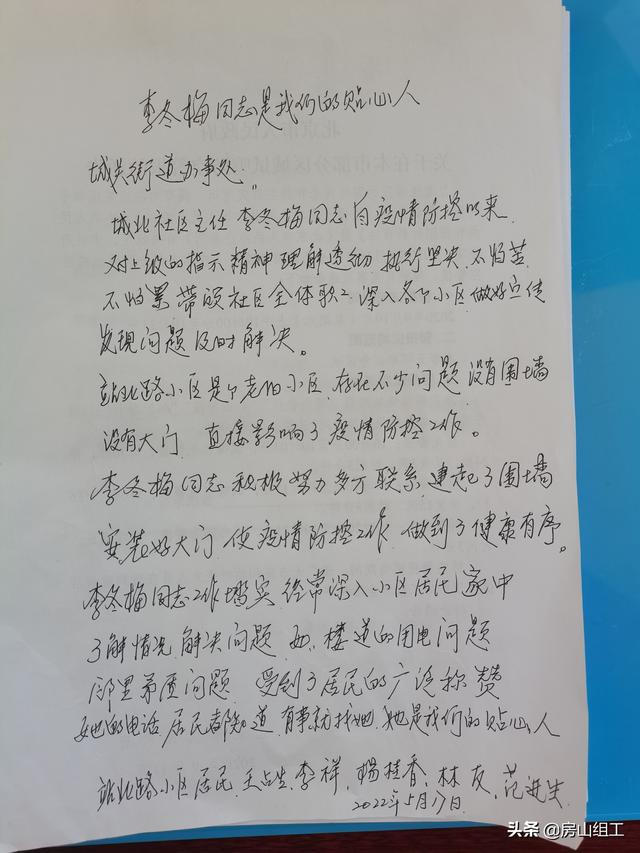 李冬梅同志是我们的贴心人
城关街道办事处。
城北社区主任 李冬梅同志自疫情防控以来
对上级的指示精神理解透彻 执行坚决、不怕苦
不怕累 带领社区全体职工 深入各个小区 做好宣传
发现问题及时解决。
站北路小区是个老旧小区、存在不少问题 没有围墙
没有大门 直接影响了疫情防控工作。
李冬梅同志积极努力多方联系 建起了围墙
安装好大门 使疫情防控工作 做到了健康有序。
李冬梅同志工作塌实 经常深入小区居民家中
了解情况 解决问题 如、楼道的用电问题
邻里矛盾问题 受到了居民的广泛称赞
她的电话 居民都知道 有事就找她、她是我们的贴心人
站北路小区居民、王占生、李祥、杨桂香、林友、范进生
2022年5月17日
头条 @房山组工